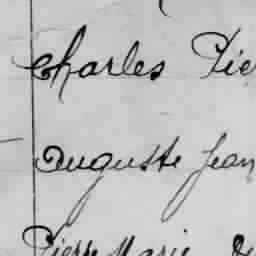 Charles Pie
Auguste Jean
Pierre Marie de